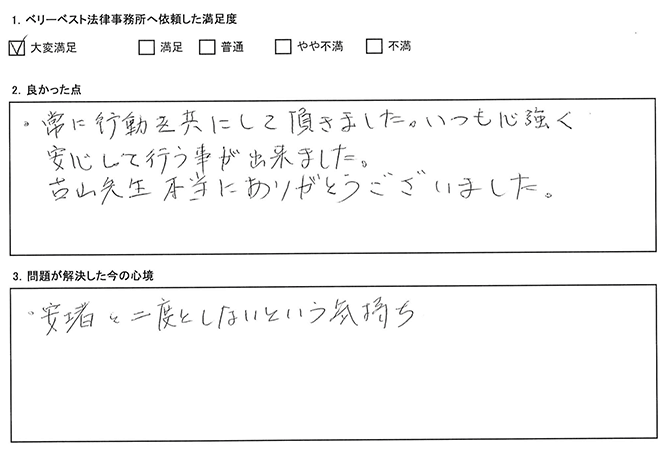 1. ベリーベスト法律事務所へ依頼した満足度
☑ 大変満足 □ 満足 □ 普通 □ やや不満 □ 不満
2. 良かった点
・常に行動を共にして頂きました。いつも心強く
安心して行う事が出来ました。
古山先生 本当にありがとうございました。
3. 問題が解決した今の心境
・安堵と二度としないという気持ち